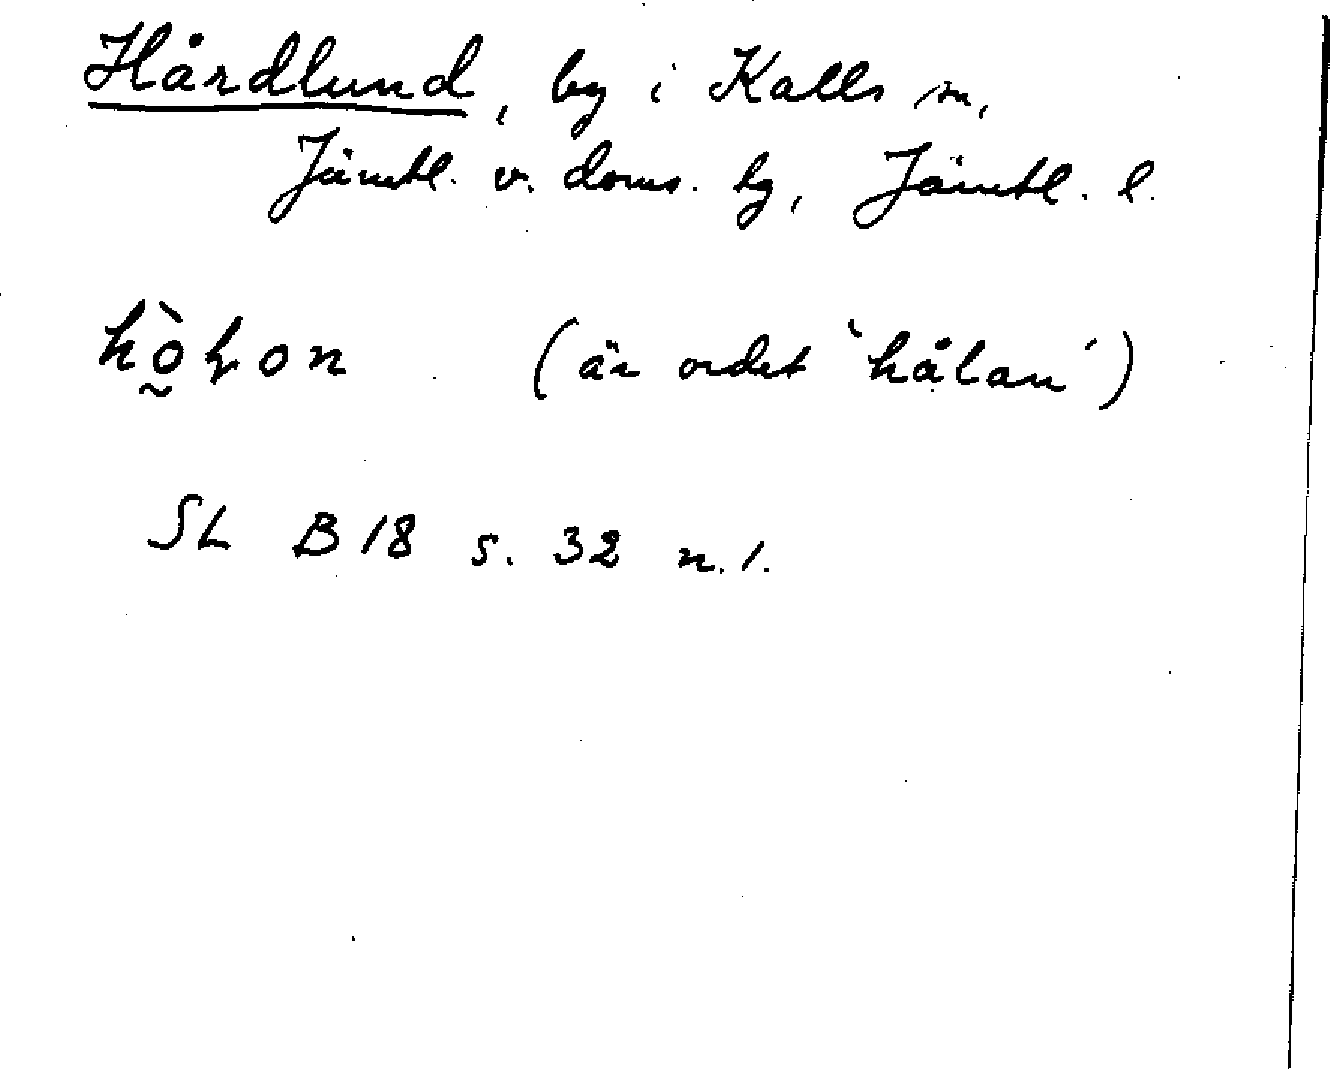 Hårdlund, by i Kalls sn,
Jämtl. v. doms. hg, Jämtl. l.
(är ordet 'hålan')
SL B18 s. 32 n. 1.